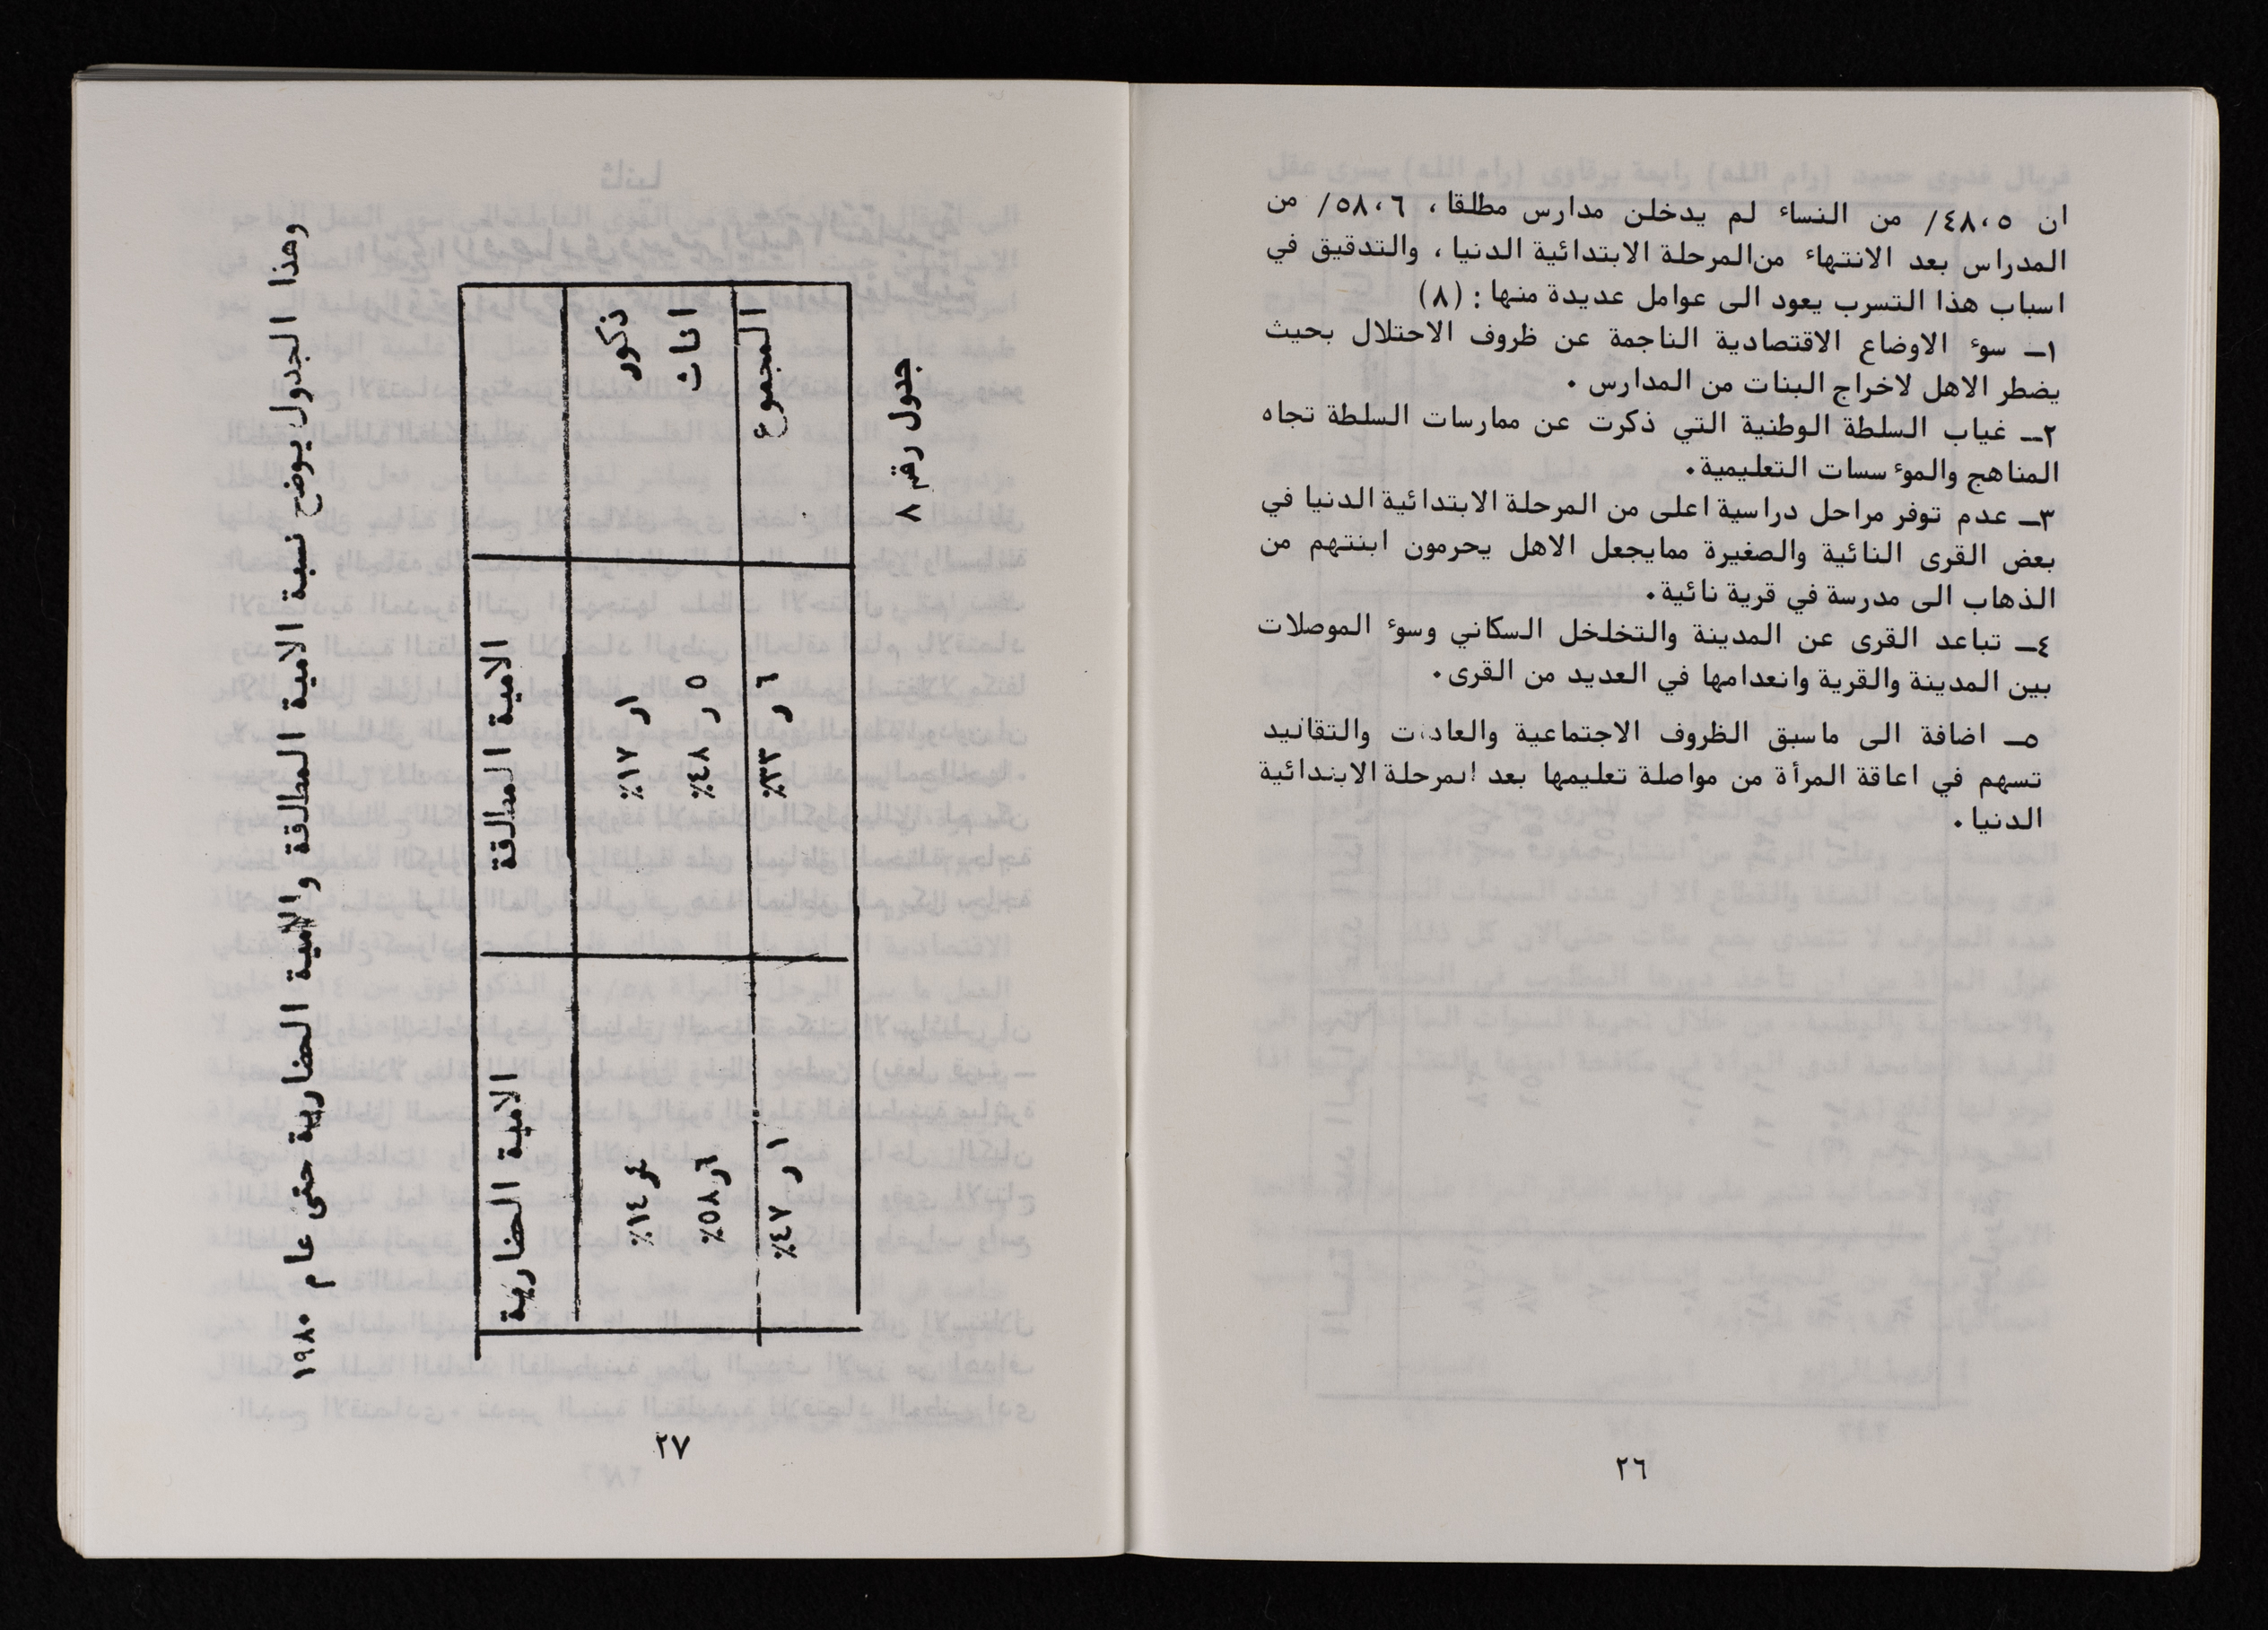 ان ٤٨،٥/ من النساء لم يدخلن مدارس مطلقا، ٥٨،٦/ من
المدراس بعد الانتهاء من المرحلة الابتدائية الدنيا، والتدقيق في
اسباب هذا التسرب يعود الى عوامل عديدة منها: (٨)
١ــ سوء الاوضاع الاقتصادية الناجمة عن ظروف الاحتلال بحيث
يضطر الاهل لاخراج البنات من المدارس .
٢ــ غياب السلطة الوطنية التي ذكرت عن ممارسات السلطة تجاه
المناهج والموء سسات التعليمية.
٣ــ عدم توفر مراحل دراسية اعلى من المرحلة الابتدائية الدنيا في
بعض القرى النائية والصغيرة ممايجعل الاهل يحرمون ابنتهم من
الذهاب الى مدرسة في قرية نائية.
٤ــ تباعد القرى عن المدينة والتخلخل السكاني وسوء الموصلات
بين المدينة والقرية وانعدامها في العديد من القرى.
٥ــ اضافة الى ماسبق الظروف الاجتماعية والعادات والتقاليد
تسهم في اعاقة المرأة من مواصلة تعليمها بعد المرحلة الابتدائية
الدنيا .
٢٦
وهذا الجدول يوضح نسبة الامية المطلقة والامية الحضارية حتى عام ١٩٨٠
الامية المطلقة الامية الحضارية
ذكور ١ر١٧٪ ٤ر١٤٪
اناث ٥ر٤٨٪ ٦ر٥٨٪
المجموع ٦ر٣٣٪ ١ر٤٧٪
جدول رقم ٨
٢٧